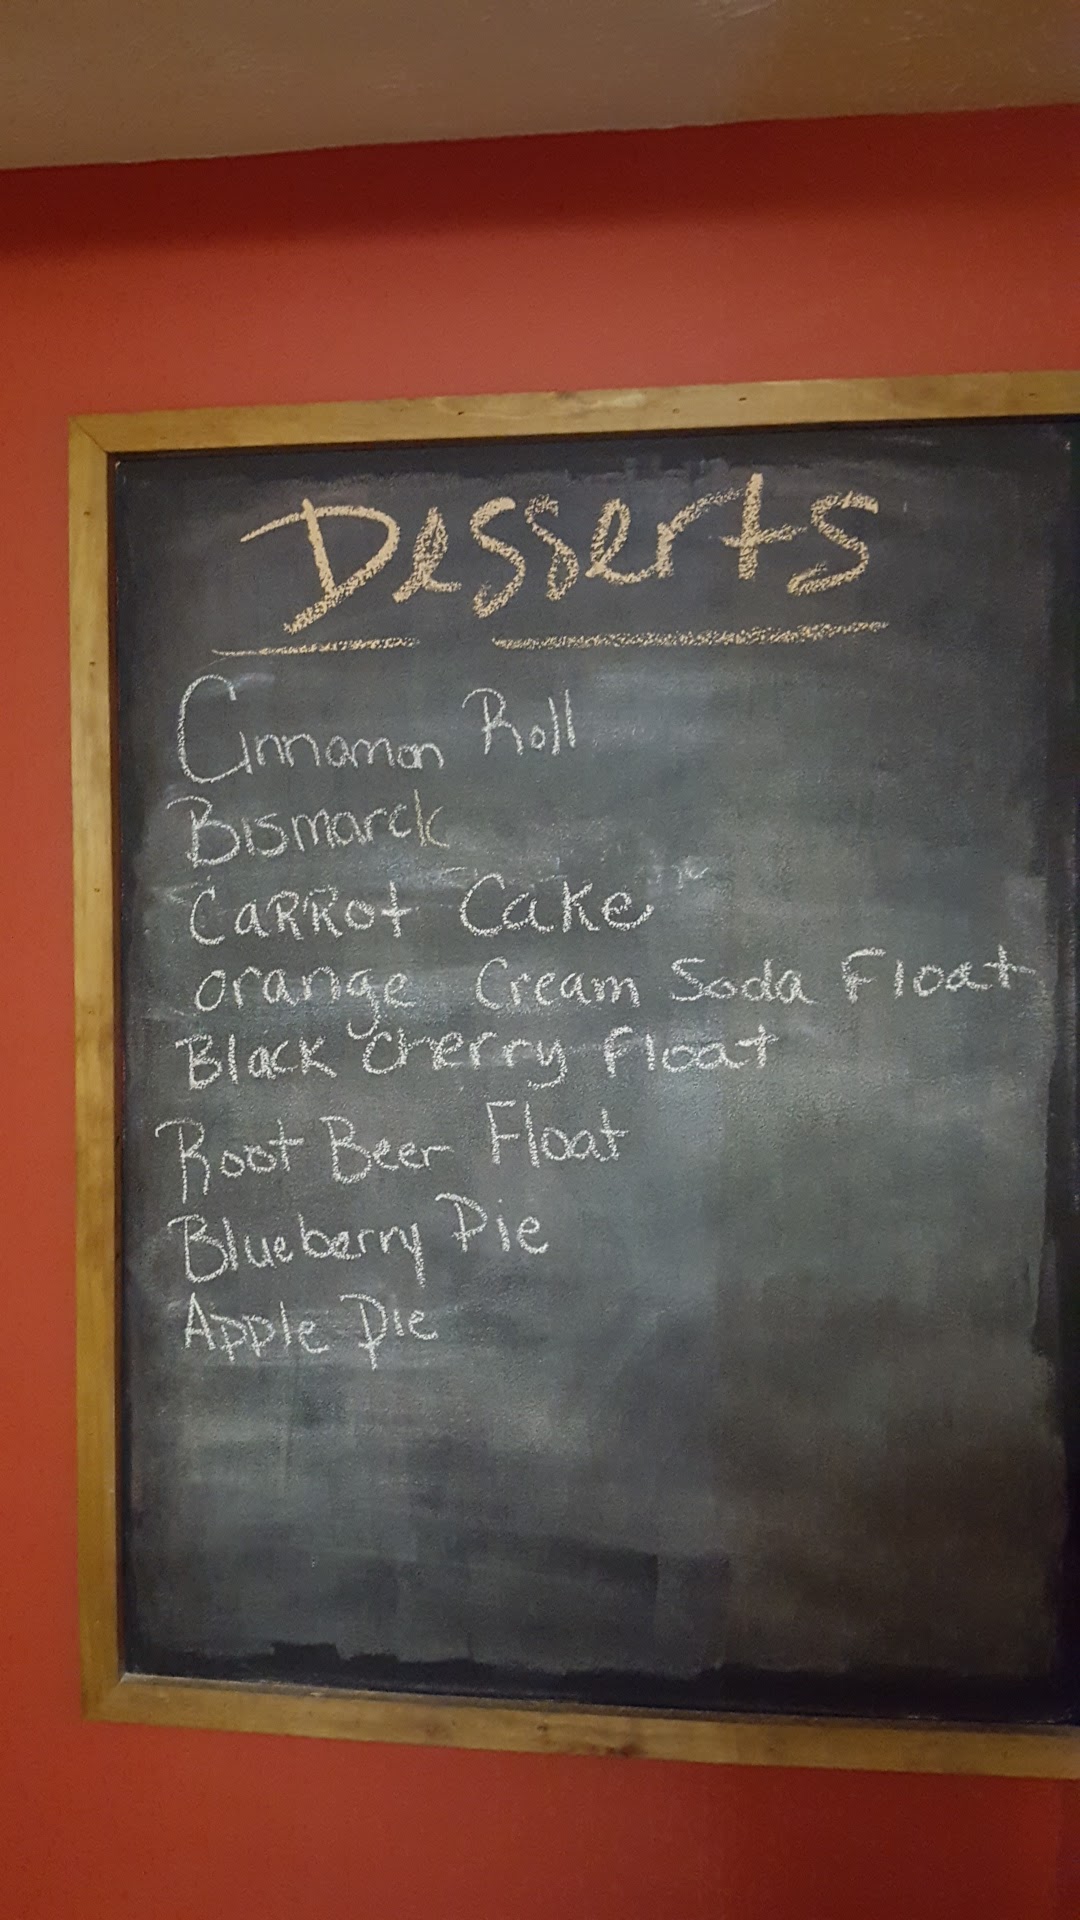 Desserts
Cinnamon Roll
Bismarck
CaRRot Cake
orange Cream Soda Float
Black Cherry Float
Root Beer Float
Blueberry Pie
Apple Pie